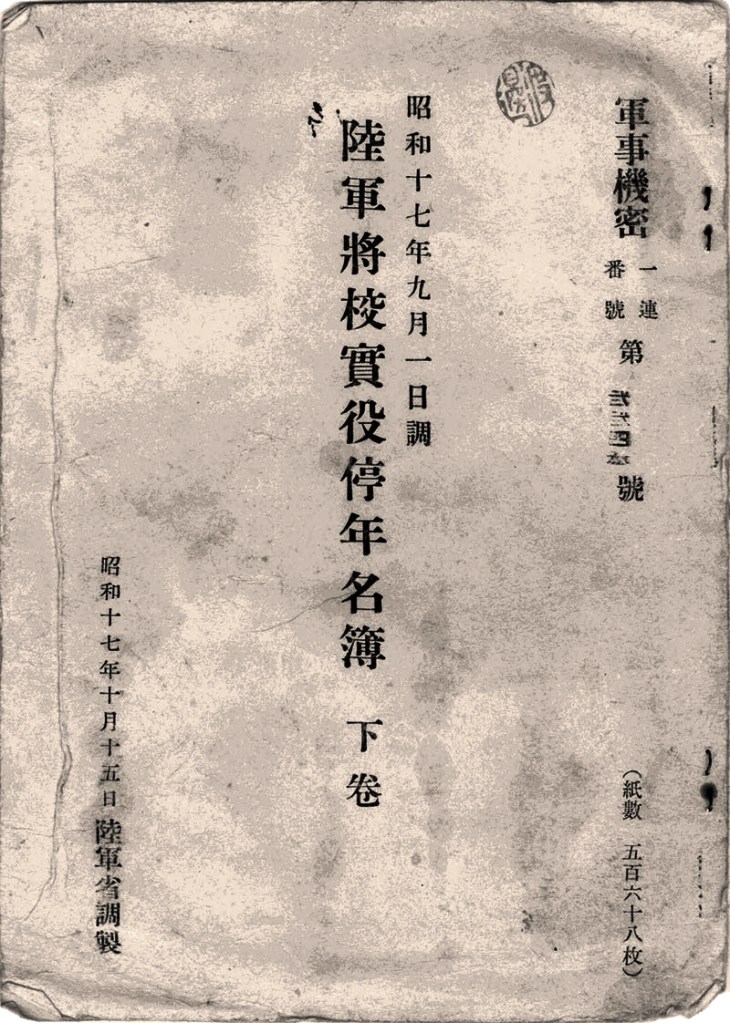 軍事機密
一連
番號
第
號
（紙數　五百六十八枚）
昭和十七年九月一日調
陸軍將校實役停年名簿　下卷
昭和十七年十月十五日　陸軍省調製